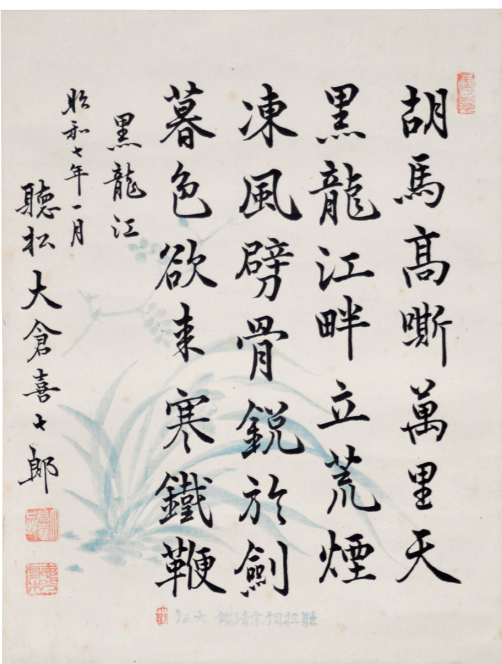 胡馬高嘶萬里天
黒龍江畔立荒煙
凍風劈骨鋭於劍
暮色欲来寒鐵鞭
黒龍江
昭和七年一月
聽松大倉喜七郎